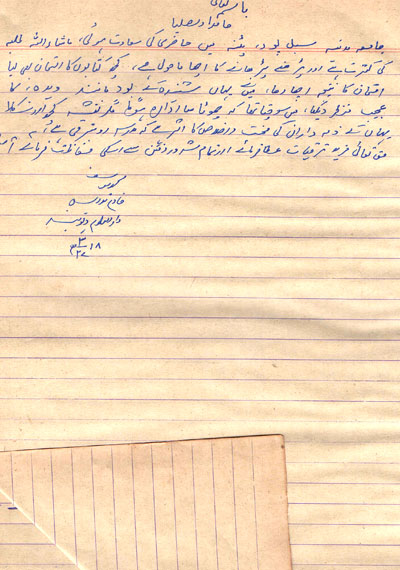 باسمہ تعالیٰ
حامدا و مصلیا
جامعہ مدنیہ سبل پور، پٹنہ میں حاضری کی سعادت ہوئی، ماشاءاللہ طلبہ
کی کثرت ہے اور پڑھنے پڑھانے کا اچھا ماحول ہے، کچھ کتابوں کا امتحان بھی لیا
امتحان کا نتیجہ اچھا رہا، میں یہاں شنیدہ کے بود مانند دیدہ، کا
عجیب منظر دیکھا، میں سوچتا تھا کہ چھوٹا سا ادارہ ہوگا، مگر نقشہ کچھ اور نکلا
یہاں کے ذمہ داران کی محنت و خلوص کا اثر ہے کہ مدرسہ رو بترقی ہے
حق تعالیٰ مزید ترقیات عطا فرمائے اور تمام شرور و فتن سے اسکی حفاظت فرمائے آمین
محمد یوسف
خادم تدریس
دارالعلوم دیوبند